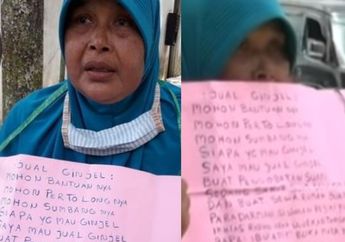 JUAL GINJEL :
MOHON BANTUAN NYA
MOHON PERTOLONG NYA
MOHON SUMBANG NYA
SIAPA YG MAU GINJEL
SAYA MAU JUAL GINJEL
JUAL GINJEL
MOHON BANTUAN NYA
MOHON PERTOLONG
MOHON SUMBANG NYA
SIAPA YG MAU GINJEL
SAYA MAU JUAL GINJEL
BUAT PENGOBATAN SUAMI
DAN BUAT SEWA RUMAH